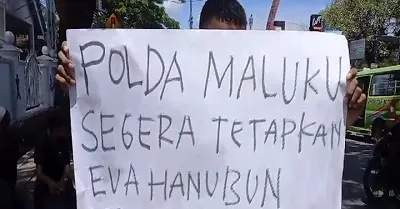 POLDA MALUKU
SEGERA TETAPKAN
EVA HANUBUN